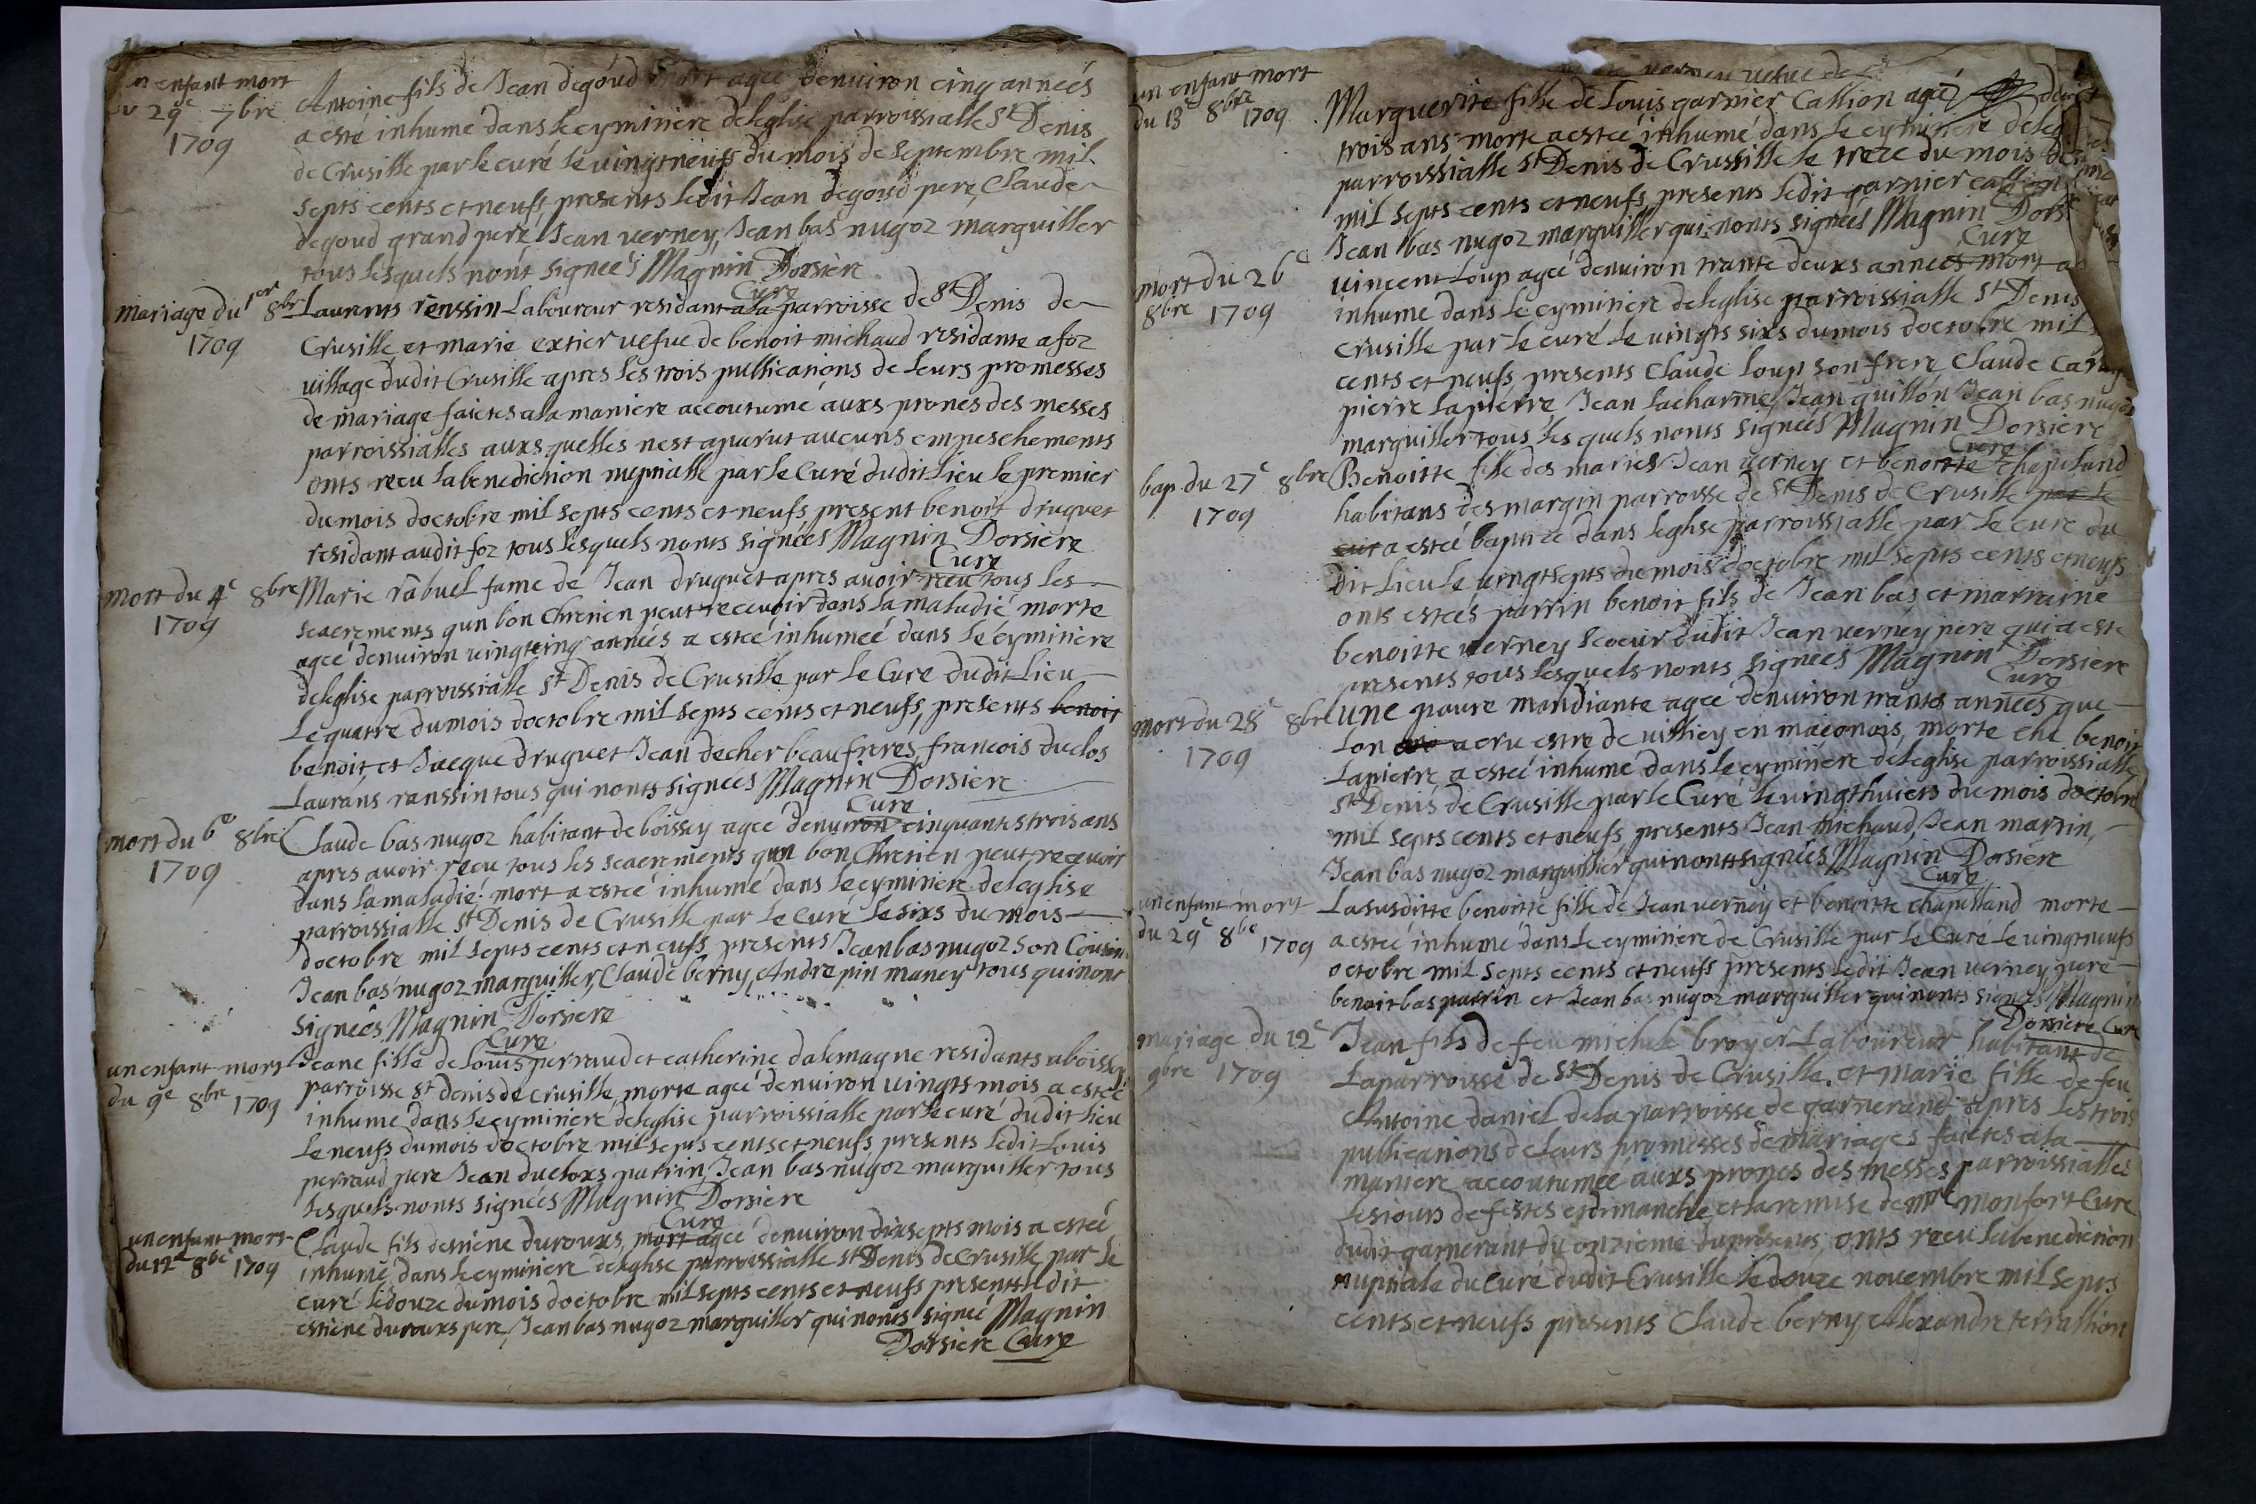 un enfant mort
du 29e 7bre
1709
Antoine fils de Jean degoud mort ageé denviron cinq anneés
a esté inhumé dans le cymitiere deleglise parroissialle St Denis
de Crusille par le curé le vingtneufs du mois de septembre mil
septs cents et neufs, presents ledit Jean degoud pere, Claude
degoud grand pere Jean verney, Jean bas nugoz marguiller
tous lesquels nont signeés Magnin Dorsiere
Curé
mariage du 1er 8bre
1709
Laurents renssin Laboureur residant a la parroisse de St Denis de
Crusille et marie extier vefue de benoit michaud residante a foz
village dudit Crusille apres les trois publications de leurs promesses
de mariage faictes ala maniere accoutumé auxs prones des messes
parroissialles auxs quelles nest aparut aucuns empeschements
onts receu la benediction nuptialle par le Curé dudit Lieu le premier
du mois doctobre mil septs cents et neufs present benoit druguet
residant audit foz tous lesquels nonts signeés Magnin Dorsiere
Curé
mort du 4e 8bre
1709
Marie rabuel fame de Jean druguet apres avoir receu tous les
seacrements qun bon Chretien peut recevoir dans la maladié morte
ageé denviron vingtcinq anneés a esteé inhumeé dans le cymitiere
deleglise parroissialle St Denis de Crusille par le Curé dudit Lieu
Le quatre du mois doctobre mil septs cents et neufs, presents benoit
benoit, et Jacque druguet Jean decher beaufreres, francois duclos
Laurans ranssin tous qui nonts signeés Magnin Dorsiere
Curé
mort du 6e 8bre
1709
Claude bas nugoz habitant de boissey ageé denviron cinquants trois ans
apres avoir receu tous les seacrements qun bon Chretien peut recevoir
dans la maladié mort a esteé inhumé dans le cymitiere deleglise
parroissialle St Denis de Crusille par le curé le sixs du mois
doctobre mil septs cents et neufs, presents Jean bas nugoz son Cousin
Jean bas nugoz marguiller, Claude berny, Andre pin maney tous qui nont
signeés Magnin Dorsiere
Curé
un enfant mort
du 9e 8bre 1709
Jeane fille de Louis perraud et catherine dalemagne residants a boissey
parroisse St denis de crusille, morte ageé denviron vingts mois a esteé
inhumé dans le cymitiere deleglise parroissialle par le curé dudit lieu
le neufs du mois doctobre mil septs cents et neufs, presents ledit Louis
perraud pere Jean ducloxs parrin, Jean bas nugoz marguiller, tous
lesquels nonts signeés Magnin Dorsiere
Curé
un enfant mort
du 12e 8bre 1709
Claude fils destiene durouxs, mort ageé denviron dixsepts mois a esteé
inhumé dans le cymitiere deleglise parroissialle St Denis de Crusille par le
curé le douze du mois doctobre mil septs cents et neufs presents ledit
estiene durouxs pere, Jean bas nugoz marguiller qui nonts signeé Magnin
Dorsiere Curé
verney vefue de
un enfant mort
du 13e 8bre 1709
Marguerite fille de Louis garnier Callion ageé
trois ans morte a esteé inhumé dans le cymitiere
parroissialle St Denis de Crussille le treze du mois
mil septs cents et neufs, presents ledit garnier
Jean bas nugoz marguiller qui nonts signeés Magnin
Curé
mort du 26e
8bre 1709
vincent Loup ageé denviron trante deuxs anneés mort a
inhumé dans le cymitiere deleglise parroissialle St Denis
Crusille par le curé le vingts sixs du mois doctobre mil
cents et neufs presents Claude Loup son frere, Claude
pierre Lapierre, Jean Lacharme, Jean guillon Jean bas nugoz
marguiller tous lesquels nonts signeés Magnin Dorsiere
Curé
bap du 27e 8bre
1709
Benoitte fille des mariés Jean verney et benoitte chapeland
habitans des margin parroisse de St Denis de Crusille par le
curé a esteé baptizé dans leglise parroissialle par le curé du
dit Lieu le vingtsepts du mois doctobre mil septs cents et neufs
onts esteés parrin benoit fils de Jean bas et marraine
benoitte verney seoeur dudit Jean verney pere qui a esté
presents tous lesquels nonts signeés Magnin Dorsiere
Curé
mort du 28e 8bre
1709
une pauvre mandiante ageé denviron trants anneés que
Lon a cru estre de villiey en maconois, morte ché benoit
Lapierre, a esteé inhumé dans le cymitiere deleglise parroissialle
St Denis de Crusille par le Curé le vingthuicts du mois doctobre
mil septs cents et neufs, presents Jean michaud, Jean martin,
Jean bas nugoz marguiller qui nont signeés Magnin Dorsiere
Curé
un enfant mort
du 29e 8bre 1709
La susditte benoitte fille de Jean verney et benoitte chapelland morte
a esteé inhumé dans le cymitiere de Crusille par le Curé le vingtneufs
octobre mil septs cents et neufs presents ledit Jean verney pere
benoit bas parrin et Jean bas nugoz marguiller qui nonts signeés Magnin
Dorsiere Curé
mariage du 12e
9bre 1709
Jean fils de feu michele broyer Laboureur habitant de
La parroisse de St Denis de Crusille, et Marie fille de feu
Antoine daniel de la parroisse de garnerant apres les trois
publications de leurs promesses de mariages faictes ala
maniere accoutumeé auxs prones des messes parroissialles
les jours de festes et dimanche, et la remise de mre monfort Curé
dudit garnerant du onzieme du presents, onts receu la benediction
nuptiale du curé dudit Crusille le douze novembre mil septs
cents et neufs presents Claude berny, Alexandre terrallion